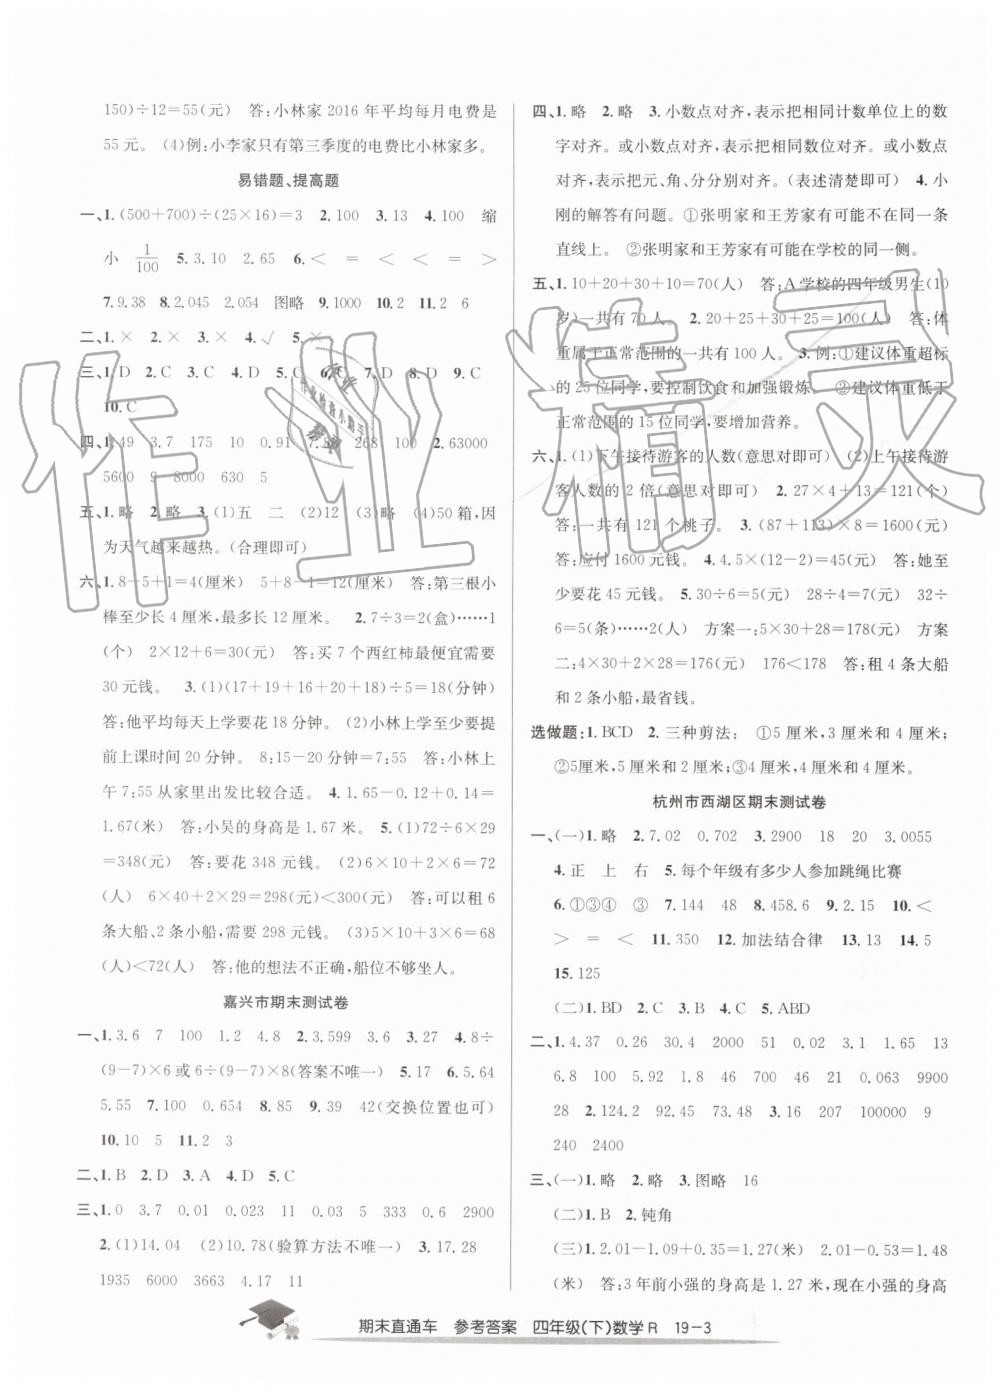 150)÷12=55(元) 答:小林家 2016 年平均每月电费是
55 元。 (4)例:小李家只有第三季度的电费比小林家多。
易错题、提高题
一、1. (500+700)÷(25×16)=3 2. 100 3. 13 4. 100 缩
小 1/100 5. 3. 10 2. 65 6. < = < < = >
7. 9. 38 8. 2. 045 2. 054 图略 9. 1000 10. 2 11. 2 6
二、1. × 2. × 3. × 4. √ 5. ×
三、1. D 2. C 3. C 4. D 5. C 7. B 8. D 9. C
10. C
四、1. 49 3. 7 175 10 0. 91 268 100 2. 63000
5600 9 8000 230 5
五、1. 略 2. 略 3. (1)五 二 (2)12 (3)略 (4)50 箱,因
为天气越来越热。(合理即可)
六、1. 8-5+1=4(厘米) 5+8-1=12(厘米) 答:第三根小
棒至少长 4 厘米,最多长 12 厘米。 2. 7÷3=2(盒)……1
(个) 2×12+6=30(元) 答:买 7 个西红柿最便宜需要
30 元钱。 3. (1)(17+19+16+20+18)÷5=18(分钟)
答:他平均每天上学要花 18 分钟。 (2)小林上学至少要提
前上课时间 20 分钟。 8:15-20=7:55 答:小林上
午 7:55 从家里出发比较合适。 4. 1. 65-0. 1+0. 12=
1. 67(米) 答:小吴的身高是 1. 67 米。 5. (1)72÷6×29
=348(元) 答:要花 348 元钱。 (2)6×10+6×2=72
(人) 6×40+2×29=298(元)<300(元) 答:可以租 6
条大船、2 条小船,需要 298 元钱。 (3)5×10+3×6=68
(人)<72(人) 答:他的想法不正确,船位不够坐人。
嘉兴市期末测试卷
一、1. 3. 6 7 100 1. 2 4. 8 2. 3. 599 3. 6 3. 27 4. 8÷
(9-7)×6 或 6÷(9-7)×8(答案不唯一) 5. 17 6. 5. 64
5. 55 7. 100 0. 654 8. 85 9. 39 42(交换位置也可)
10. 10 5 11. 2 3
二、1. B 2. D 3. A 4. D 5. C
三、1. 0 3. 7 0. 01 0. 023 11 0. 03 5 333 0. 6 2900
2. (1)14. 04 (2)10. 78(验算方法不唯一) 3. 17. 28
1935 6000 3663 4. 17 11
四、1. 略 2. 略 3. 小数点对齐,表示把相同计数单位上的数
字对齐。或小数点对齐,表示把相同数位对齐。或小数点
对齐,表示把元、角、分分别对齐。(表述清楚即可) 4. 小
刚的解答有问题。①张明家和王芳家有可能不在同一条
直线上。 ②张明家和王芳家有可能在学校的同一侧。
五、1. 10+20+30+10=70(人) 答:A 学校的四年级男生(10
岁)一共有 70 人。 2. 20+25+30+25=100(人) 答:体
重属于正常范围的一共有 100 人。 3. 例:①建议体重超标
的 25 位同学,要控制饮食和加强锻炼。 ②建议体重低于
正常范围的 15 位同学,要增加营养。
六、1. (1)下午接待游客的人数(意思对即可) (2)上午接待游
客人数的 2 倍(意思对即可) 2. 27×4+13=121(个)
答:一共有 121 个桃子。 3. (87+113)×8=1600(元)
答:应付 1600 元钱。 4. 4. 5×(12-2)=45(元) 答:她至
少要花 45 元钱。 5. 30÷6=5(元) 28÷4=7(元) 32÷
6=5(条)……2(人) 方案一:5×30+28=178(元) 方案
二:4×30+28×2=176(元) 176<178 答:租 4 条大船
和 2 条小船,最省钱。
选做题:1. BCD 2. 三种剪法: ①5 厘米,3 厘米和 4 厘米;
②5厘米,5 厘米和 2 厘米;③4 厘米,4 厘米和 4 厘米。
杭州市西湖区期末测试卷
一、(一)1. 略 2. 7. 02 0. 702 3. 2900 18 20 3. 0055
4. 正 上 右 5. 每个年级有多少人参加跳绳比赛
6. ①③④ ③ 7. 144 48 8. 458. 6 9. 2. 15 10. <
> = < 11. 350 12. 加法结合律 13. 13 14. 5
15. 125
(二)1. BD 2. C 3. B 4. C 5. ABD
二、1. 4. 37 0. 26 30. 4 2000 51 0. 02 3. 1 1. 65 13
6. 8 100 0. 15 400 46 400 21 0. 063 9900
28 2. 124. 2 92. 45 73. 48 3. 16 207 100000 9
240 2400
三、(一)1. 略 2. 略 3. 图略 16
(二)1. B 2. 钝角
(三)1. 2. 01-1. 09+0. 35=1. 27(米) 2. 01-0. 53=1. 48
(米) 答:3 年前小强的身高是 1. 27 米,现在小强的身高
期末直通车 参考答案 四年级(下)数学 R 19-3
作业精灵